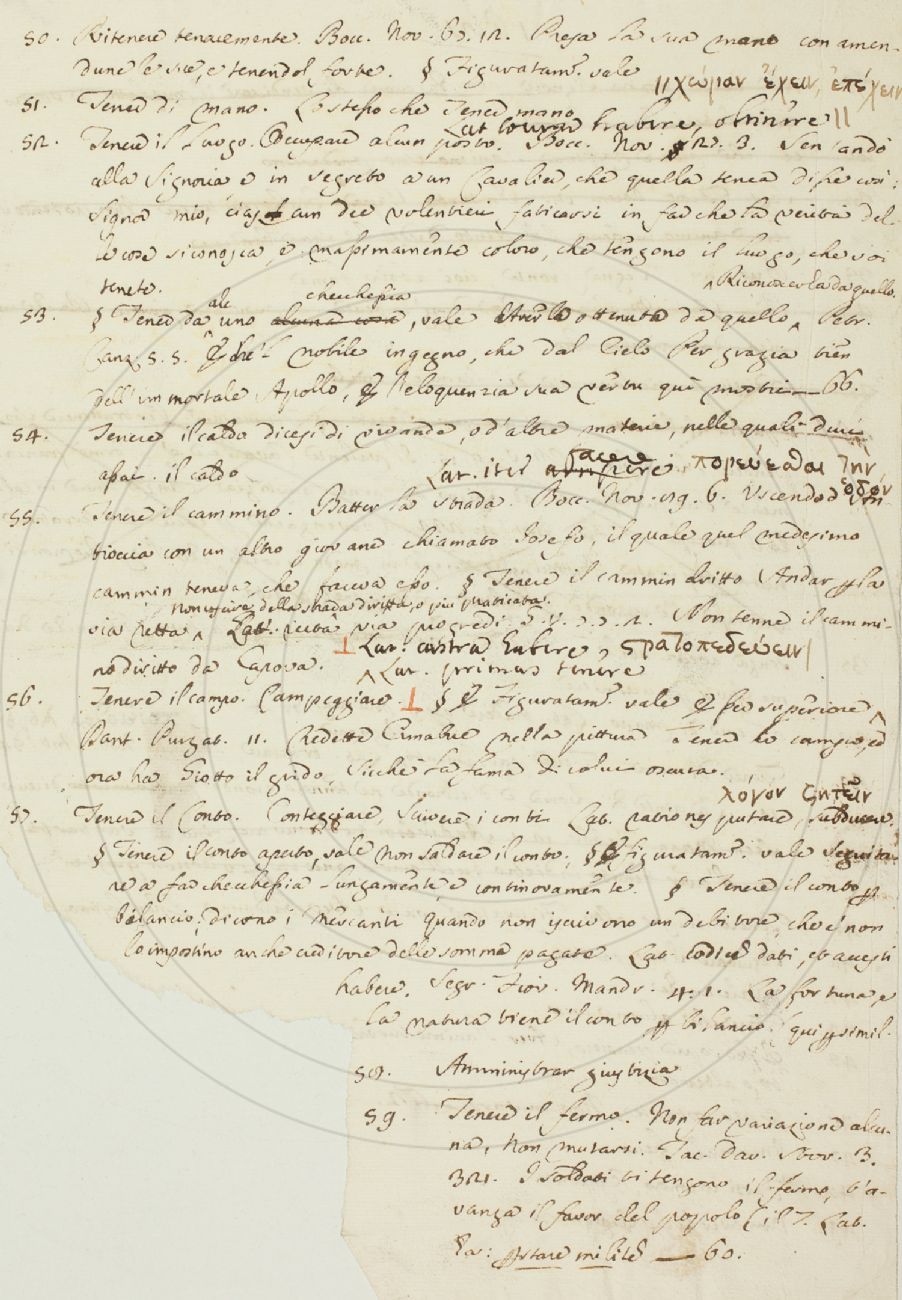 50. Ritenere tenacemente. Bocc. Nov. 60. 12. Presa la sua mano con amen-
dune le sue, e tenendol forte. § Figuratam. vale
|| χώραν ἔχειν, ἐπέχειν
51. Tener di mano. Lo stesso che Tener mano
Lat. locum habere, obtinere ||
52. Tenere il Luogo. Occupare alcun posto. Bocc. Nov. 20. 3. Sentando
alla Signoria e in segreto a un Cavalier, che quella tenea disse così:
Signor mio, ciascun dee volentieri faticarsi in far che la verità del-
le cose si conosca, e massimamente coloro, che tengono il luogo, che voi
tenete.
^ Riconoscerla da quello.
ale checchessia
53. § Tener da uno alcuna cosa, vale Averla ottenuta da quello ^ Petr.
Canz. 5. 5. E che 'l nobile ingegno, che dal Cielo Per grazia tien
dell' immortale Apollo, E l'eloquenzia sua vertù qui mostri — 66.
54. Tenere il caldo dicesi di vivande, o d'altre materie, nelle quali duri
assai il caldo
Lat. iter facere πορεύεσθαι τὴν
ὁδόν
55. Tenere il cammino. Batter la strada. Bocc. Nov. 89. 6. Uscendo d' An-
tioccia con un altro giovane chiamato Josefo, il quale quel medesimo
cammin teneva, che faceva esso. § Tenere il cammin dritto Andar per la
Non uscire della strada diritta, o più praticata.
via retta ^ Lat. recta via progredi. Non tenne il cammi-
no diritto da Capova.
⊥ Lat. castra habere, στρατοπεδεύειν|
^ Lat. primas tenere
56. Tenere il campo. Campeggiare. ⊥ § E Figuratam. vale Esser superiore ^
Dant. Purgat. 11. Credette Cimabue nella pittura Tener lo campo, ed
ora ha Giotto il grido, Sicchè la fama di colui oscura.
λόγον ζητεῖν
57. Tenere il Conto. Conteggiare, Scrivere i conti. Lat. rationes putare, subducere.
§ Tenere il conto aperto, vale non saldare il conto. § E figuratam. vale Seguita-
re a far checchessia lungamente, e continovamente. § Tenere il conto per
bilancio; dicono i Mercanti quando non iscrivono un debitore, che e' non
lo impostino anche creditore delle somme pagate. Lat. codicem dati, et accepti
habere. Segr. Fior. Mandr. 4. 1. La fortuna, e
la natura tiene il conto per bilancio. (qui per simil.
58. Amministrar giustizia
59. Tenere il fermo. Non far variazione alcu-
na, Non mutarsi. Tac. Dav. Stor. 3.
321. I soldati ti tengono il fermo, t'a-
vanza il favor del popolo (il T. Lat.
ha: perstare militem — 60.